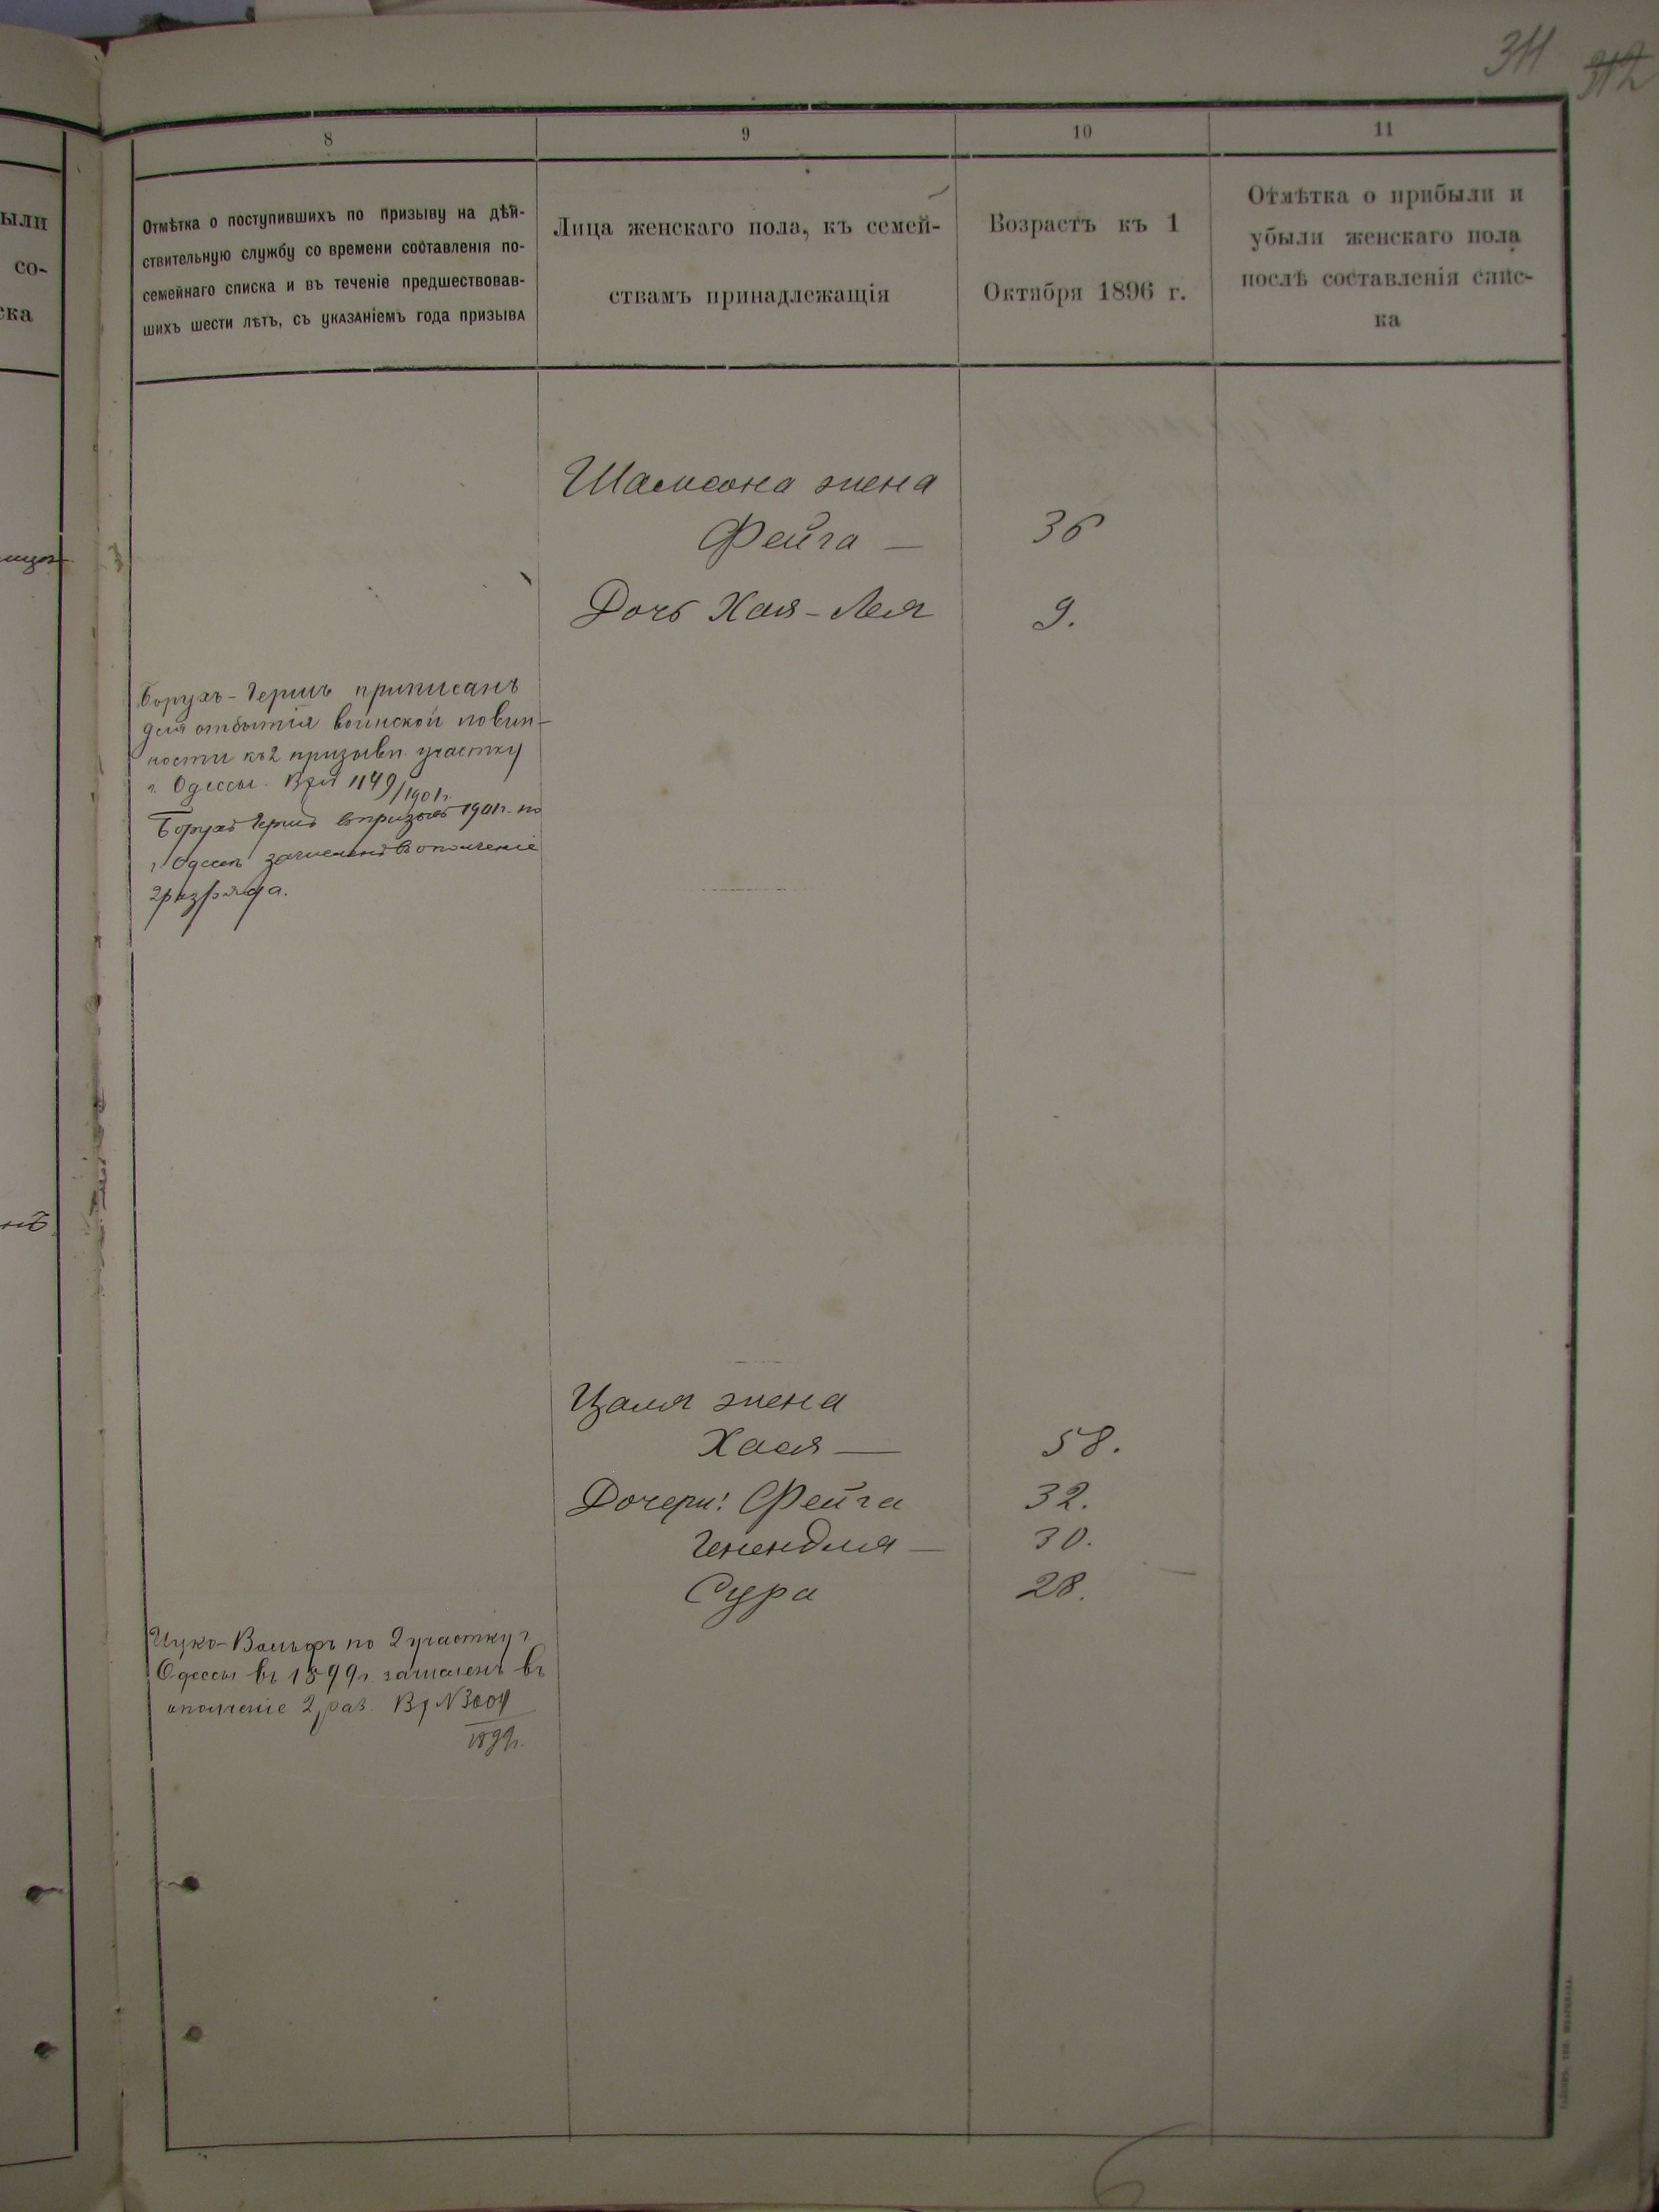 311
312
8
9
10
11
Отмѣтка о поступившихъ по призыву на дѣй-
ствительную службу со времени составленія по-
семейнаго списка и въ теченіе предшествовав-
шихъ шести лѣтъ, съ указаніемъ года призыва
Лица женскаго пола, къ семей-
ствамъ принадлежащія
Возрастъ къ 1
Октября 1896 г.
Отмѣтка о прибыли и
убыли женскаго пола
послѣ составленія спис-
ка
ыли
со-
ска
Шамсона жена
Фейга — 36
Дочь Хая-Лея 9.
Борухъ-Гершъ приписанъ
для отбытія воинской повин-
ности къ 2 призывн. участку
г. Одессы. 1149/1901 г.
Борухъ Гершъ въ призывъ 1901 г. по
г. Одессѣ зачисленъ въ ополченіе
2 разряда.
Цаля жена
Хася — 58.
Дочери: Фейга 32.
Генендля — 30.
Сура 28.
Ицко-Вольфъ по 2 участку г.
Одессы въ 1899 г. зачисленъ въ
ополченіе 2 раз. Вх. N 3004
1899 г.